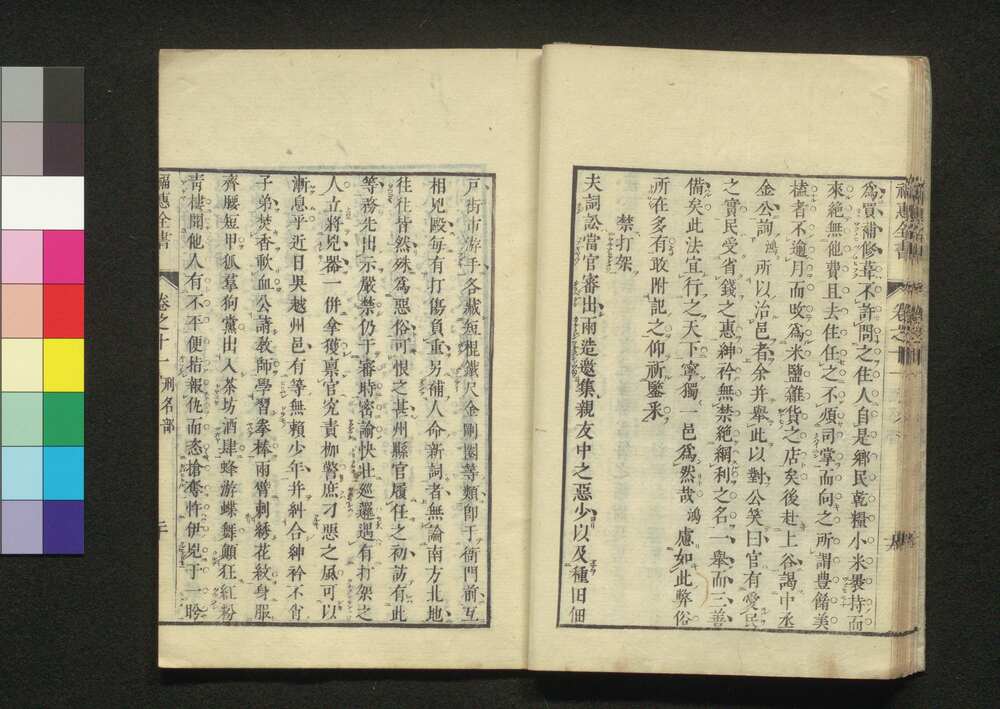 為買補修葺不許問之住人自是鄉民乾糧小米褁持而
來絶無他費且去住任之不煩司掌而向之所謂豊餚美
榼者不逾月而攺為米鹽雜貨之店矣後赴上谷謁中丞
金公詢鴻所以治邑者余并舉此以對公笑曰官有愛民
之實民受省錢之惠紳衿無禁絶網利之名一舉而三善
備矣此法宜行之天下寧獨一邑為然哉鴻慮如此弊俗
所在多有敢附記之仰祈鑒釆
禁打架
夫詞訟當官審出兩造邀集親友中之惡少以及種旧佃
戸街市游手各藏短棍鐵尺金剛圈等類卽于衙門前互
相兇毆每有打傷負重另補人命新詞者無論南方北地
往往皆然殊為惡俗可恨之甚州縣官履任之初訪有此
等務先出示嚴禁仍于審時密諭快壯廵邏遇有打架之
人立將兇器一併拿獲禀官究責枷警庶刁惡之風可以
漸息乎近日吳越州邑有等無賴少年并糾合紳衿不肖
子弟焚香歃血公請教師學習拳棒兩臂刺綉花紋身服
齊腰短甲狐羣狗黨出入茶坊酒肆蜂游蝶舞顛狂紅粉
靑樓間他人有不平便拮報仇而恣搶奪忤伊兒于一盻
福惠全書
卷之十一
刑名部